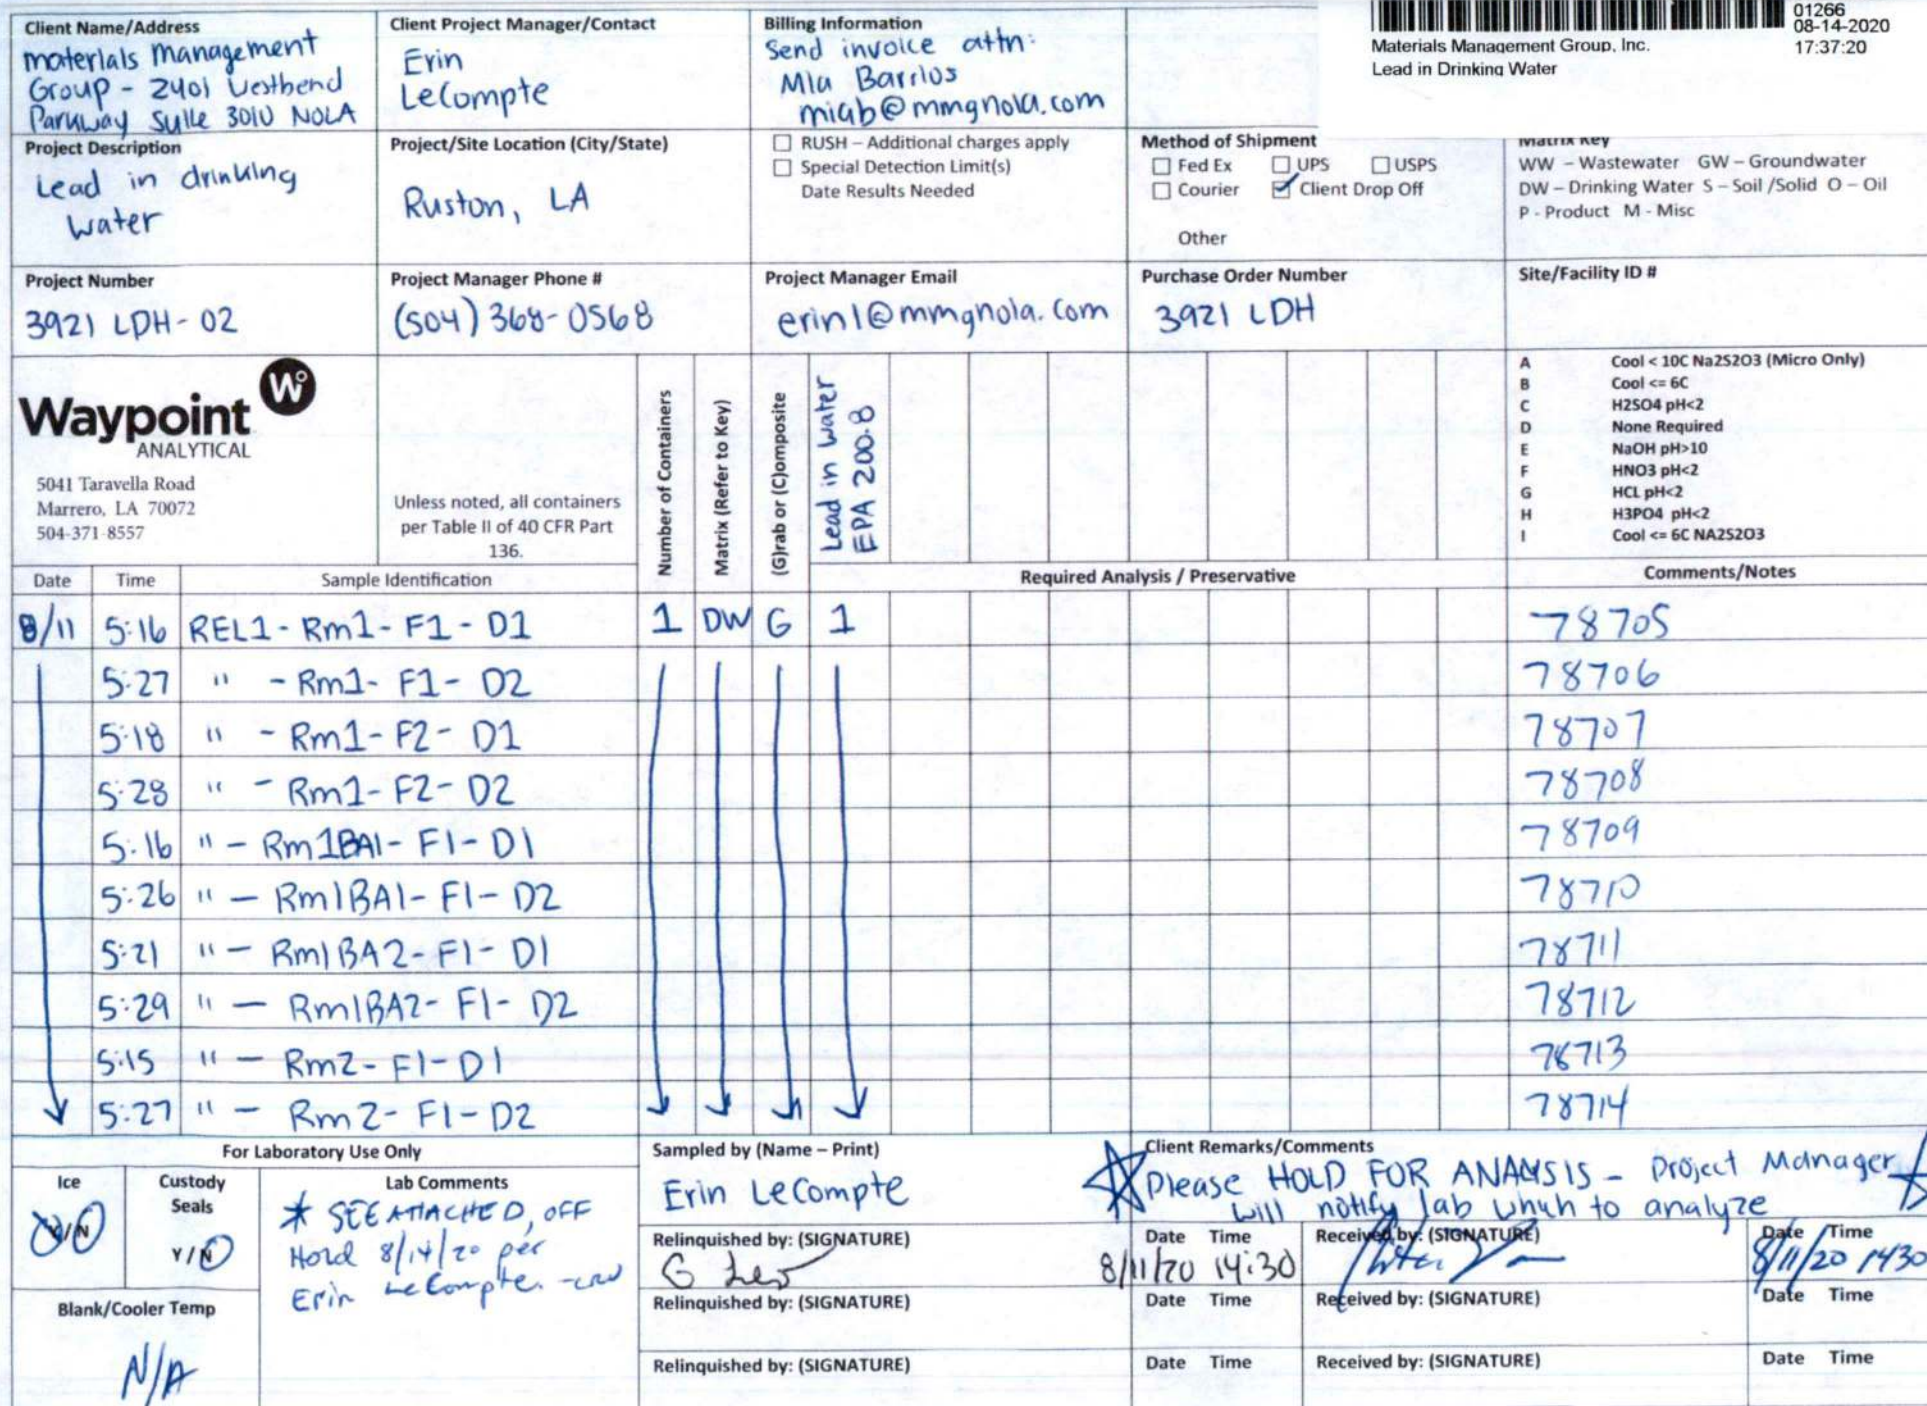 01266
08-14-2020
17:37:20
Materials Management Group, Inc.
Lead in Drinking Water
Client Name/Address
materials Management
Group - 2401 Westbend
Parkway Suite 3010 NOLA
Client Project Manager/Contact
Erin
LeCompte
Billing Information
Send invoice attn:
Mia Barrios
miab@mmgnola.com
Project Description
Lead in drinking
water
Project/Site Location (City/State)
Ruston, LA
☐ RUSH – Additional charges apply
☐ Special Detection Limit(s)
Date Results Needed
Method of Shipment
☐ Fed Ex ☐ UPS ☐ USPS
☐ Courier ☑ Client Drop Off
Other
Matrix Key
WW – Wastewater GW – Groundwater
DW – Drinking Water S – Soil /Solid O – Oil
P - Product M - Misc
Project Number
3921 LDH-02
Project Manager Phone #
(504) 368-0568
Project Manager Email
erinl@mmgnola.com
Purchase Order Number
3921 LDH
Site/Facility ID #
Waypoint W
ANALYTICAL
5041 Taravella Road
Marrero, LA 70072
504-371-8557
Unless noted, all containers
per Table II of 40 CFR Part
136.
Number of Containers
Matrix (Refer to Key)
(G)rab or (C)omposite
Lead in water
EPA 200.8
A Cool < 10C Na2S2O3 (Micro Only)
B Cool <= 6C
C H2SO4 pH<2
D None Required
E NaOH pH>10
F HNO3 pH<2
G HCL pH<2
H H3PO4 pH<2
I Cool <= 6C NA2S2O3
Date Time Sample Identification Required Analysis / Preservative Comments/Notes
8/11 5:16 REL1-Rm1-F1-D1 1 DW G 1 78705
5:27 " -Rm1-F1-D2 78706
5:18 " -Rm1-F2-D1 78707
5:28 " -Rm1-F2-D2 78708
5:16 " - Rm1BA1-F1-D1 78709
5:26 " - Rm1BA1-F1-D2 78710
5:21 " - Rm1BA2-F1-D1 78711
5:29 " - Rm1BA2-F1-D2 78712
5:15 " - Rm2-F1-D1 78713
5:27 " - Rm2-F1-D2 78714
For Laboratory Use Only
Ice
Y/N
Custody
Seals
Y/N
Lab Comments
* SEE ATTACHED, OFF
Hold 8/14/20 per
Erin LeCompte.
Blank/Cooler Temp
N/A
Sampled by (Name – Print)
Erin LeCompte
Client Remarks/Comments
Please HOLD FOR ANALYSIS - Project Manager
will notify lab which to analyze
Relinquished by: (SIGNATURE)
Date Time
8/11/20 14:30
Received by: (SIGNATURE)
Date Time
8/11/20 1430
Relinquished by: (SIGNATURE)
Date Time
Received by: (SIGNATURE)
Date Time
Relinquished by: (SIGNATURE)
Date Time
Received by: (SIGNATURE)
Date Time